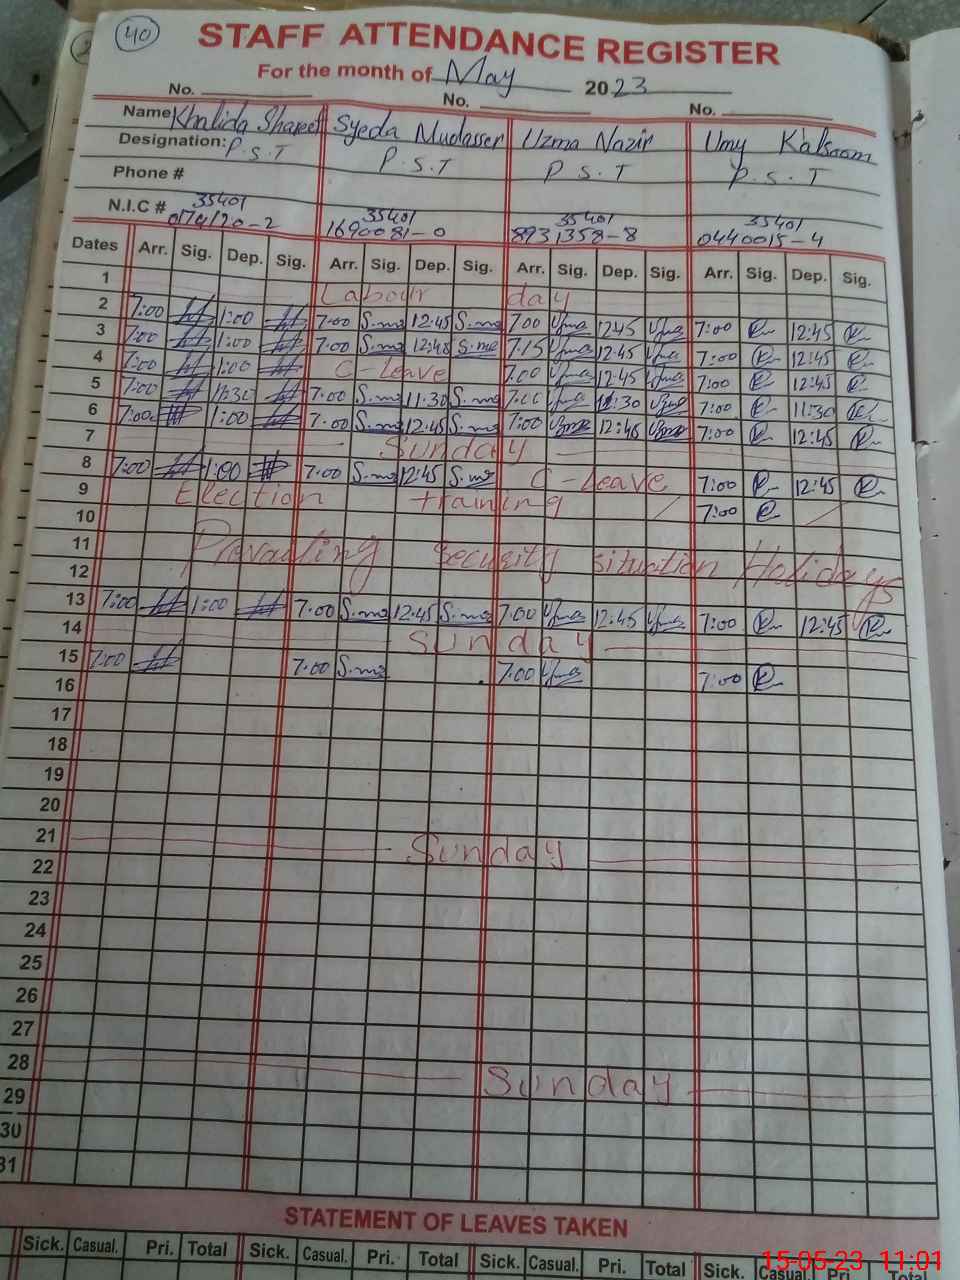 40
STAFF ATTENDANCE REGISTER
For the month of May 2023
No. No. No.
Name Khalida Shareef Syeda Mudasser Uzma Nazir Umy Kalsoom
Designation: P.S.T P.S.T P.S.T P.S.T
Phone #
N.I.C # 35401 35401 35401 35401
1690081-0 8931358-8 0440015-4
Dates Arr. Sig. Dep. Sig. Arr. Sig. Dep. Sig. Arr. Sig. Dep. Sig. Arr. Sig. Dep. Sig.
1 Labour day
2 7:00 1:00 7:00 S.me 12:45 S.me 7:00 Uzma 12:45 Uzma 7:00 12:45
3 7:00 1:00 7:00 S.me 12:45 S.me 7:15 Uzma 12:45 Uzma 7:00 12:45
4 7:00 1:00 C-leave 7:00 Uzma 12:45 Uzma 7:00 12:45
5 7:00 11:30 7:00 S.me 11:30 S.me 7:00 Uzma 11:30 Uzma 7:00 11:30
6 7:00 1:00 7:00 S.me 12:45 S.me 7:00 Uzma 12:45 Uzma 7:00 12:45
7 Sunday
8 7:00 1:00 7:00 S.me 12:45 S.me C-Leave 7:00 12:45
9 Election training 7:00
10
11 Prevailing security situation Holidays
12
13 7:00 1:00 7:00 S.me 12:45 S.me 7:00 Uzma 12:45 Uzma 7:00 12:45
14 Sunday
15 7:00 7:00 S.me 7:00 Uzma 7:00
16
17
18
19
20
21 Sunday
22
23
24
25
26
27
28 Sunday
29
30
31
STATEMENT OF LEAVES TAKEN
Sick. Casual. Pri. Total Sick. Casual. Pri. Total Sick. Casual. Pri. Total Sick. Casual. Pri. Total
15-05-23 11:01